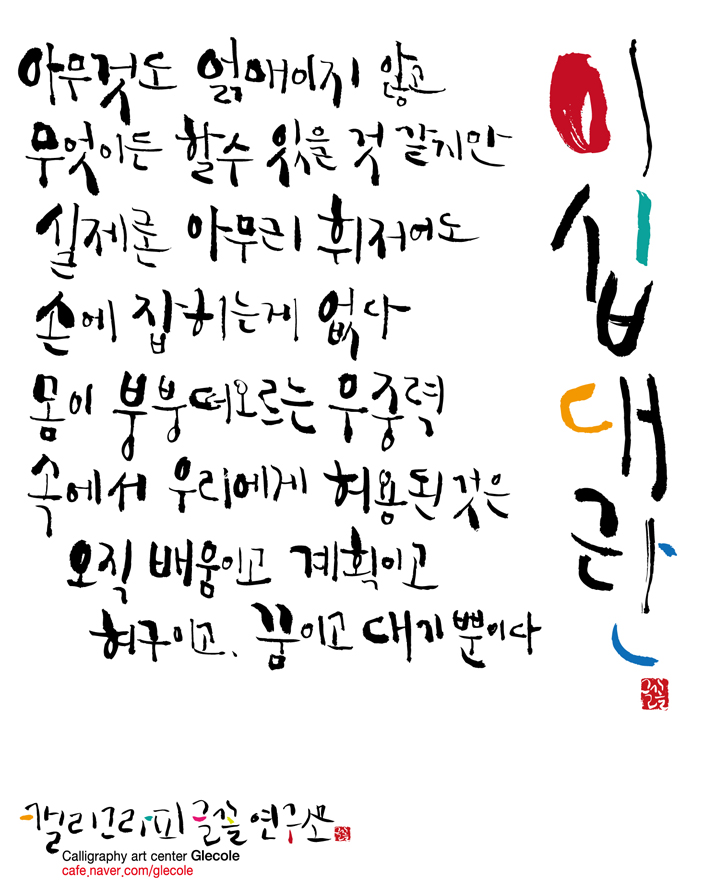 이십대란
아무것도 얽매이지 않고
무엇이든 할수 있을 것 같지만
실제론 아무리 휘저어도
손에 잡히는게 없다
몸이 붕붕떠오르는 무중력
속에서 우리에게 허용된 것은
오직 배움이고 계획이고
허구이고, 꿈이고 대기뿐이다
캘리그라피 글꼴 연구소
Calligraphy art center Glecole
cafe.naver.com/glecole